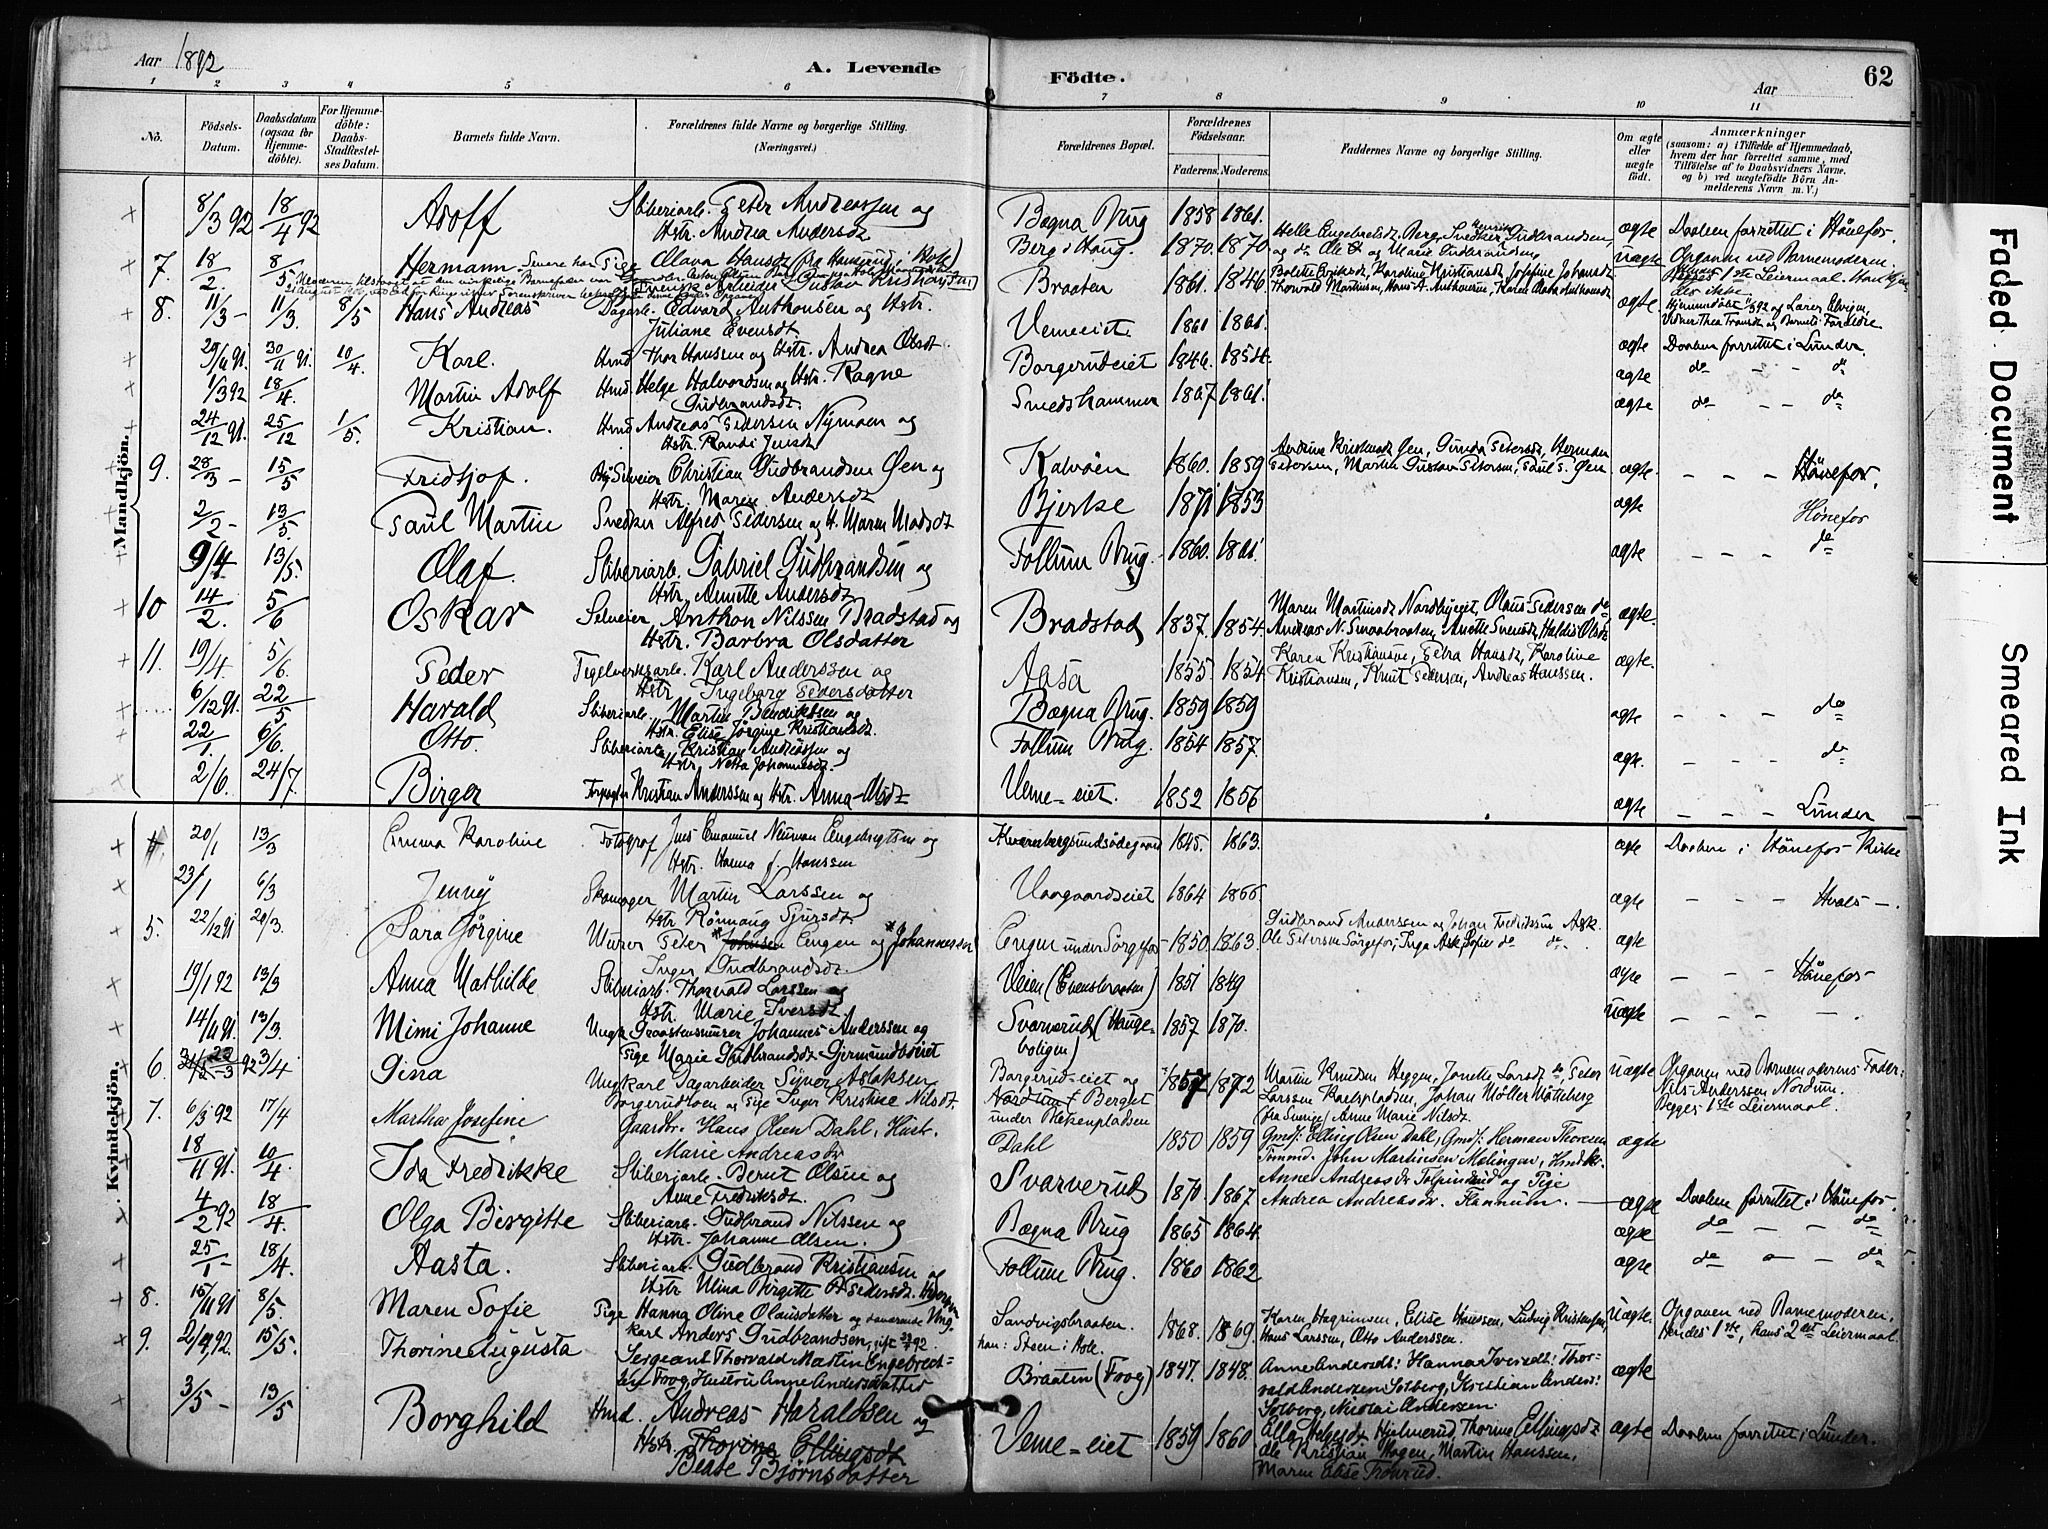 Aar 1892
A. Levende
Födte.
Aar
62
1 2 3 4 5 6 7 8 9 10 11
No.
Födsels-Datum.
Daabsdatum (ogsaa for Hjemmedöbte).
For Hjemmedöbte: Daabs-Stadfæstelses Datum.
Barnets fulde Navn.
Forældrenes fulde Navne og borgerlige Stilling. (Næringsvei.)
Forældrenes Bopæl.
Forældrenes Födselsaar.
Faderens. Moderens.
Faddernes Navne og borgerlige Stilling.
Om ægte eller uægte födt.
Anmærkninger
(saasom: a) i Tilfælde af Hjemmedaab, hvem der har forrettet samme, med Tilföielse af to Daabsvidners Navne, og b) ved uægtefödte Börn Anmelderens Navn m. V.)
Mandkjön.
8/3 92 18/4 92 Adolf Sliberiarb. Peter Andreassen og Hstr. Andrea Andersdt Bægna Brug 1858 1861. ægte Daaben forrettet i Hönefos.
7. 18/2. 8/5 Hermann Pige Olava Hansdt (fra Hanserud, i Hole) Berg i Haug. 1870. 1870. Helle Engebretsdt Berg, Snedker Gudbrandsen, uægte Opgaven ved Barnemoderen.
og Svensk Arbeider Gustav Kristiansen
8. 11/3 - 11/3. 8/5 Hans Andreas Dagarb. Edvard Anthonsen og Hstr. Juliane Evensdt Braaten 1861. 1846. Thorvald Martinsen, Hans A. Anthonsen, Karen Olava Anthonsdt ægte.
Vemeeiet. 1861 1861.
29/11 91. 30/11 91. 10/4. Karl. Hmd Thor Hanssen og Hstr. Andrea Olsdt. Borgerudeiet 1846. 1854. ægte Daaben forrettet i Lunder.
1/3 92 18/4. Martin Adolf Hmd. Helge Halvordsen og Hstr. Ragne Gudbrandsdt. Smedshammer 1867 1861. ægte do - - do
24/12 91. 25/12 1/5. Kristian. Hmd Andreas Pedersen Nymoen og Hstr. Randi Jensdt ægte do - - do
9. 28/3 - 15/5 Fridtjof. Christian Gudbrandsen Öen og Hstr. Maren Andersdt Kalvöen 1860. 1859 Andrine Kristensdt Öen, Gunda Petersdt, Herman Petersen, Martin Gustav Petersen, Paul P. Öen ægte. - - - Hönefos.
2/2 - 13/5. Paul Martin Snedker Alfred Pedersen og H. Maren Madsdt Bjerke 1871 1853 ægte Hönefos
9/4. 13/5. Olaf. Sliberiarb. Gabriel Gudbrandsen og Hstr. Annette Andersdt Follum Brug. 1860. 1861. ægte - - - do
10 14/2. 5/6 Oskar Selveier Anthon Nilssen Bradstad og Hstr. Barbra Olsdatter Bradstad 1837. 1854. Maren Martinsdt Nordbyeiet, Olaus Pedersen do Andreas N. Smaabraaten, Anette Svensdt, Haldis Olsdt ægte.
11. 19/4. 5/6. Peder Tegelverksarb. Karl Anderssen og Hstr Ingeborg Pedersdatter Aasa 1855. 1854. Karen Kristiansne, Petra Hansdt, Karoline Kristiansen, Knut Pedersen, Andreas Hanssen. ægte.
6/12 91. 22/5 Harald Sliberiarb. Martin Bendiktsen og Hstr. Elise Jörgine Kristiansdt. Bægna Brug. 1859 1859 ægte - - - do
22/1. 6/6. Otto. Sliberiarb. Kristian Andreassen og Hstr. Netta Johannesdt. Follum Brug. 1854 1857. ægte. - - - do
2/6. 24/7. Birger Kristian Anderssen og Hstr. Anna Olsdt Veme-eiet. 1852 1856 ægte - - - Lunder
Kvindekjön.
20/1 13/3 Emma Karoline Fotograf Jens Emanuel Neuman Engebrigtsen og Hstr. Hanna f. Hanssen Kværnbergsundsödegaard 1845. 1863. ægte Daaben i Hönefos Kirke
23/1 6/3 Jenny Skomager Martin Larssen og Hstr. Rönnaug Sjursdt. Vaagaardseiet 1864 1866. ægte - - - Hvals -.
5. 22/12 91 20/3. Sara Jörgine Murer Peter Johnsen Engen og Johannessen Inger Gudbrandsdt. Engen under Sörgefos 1850 1863. Gudbrand Anderssen og Johan Fredrikssen Ask. Ole Petersen Sörgefos, Inga Ask, Sofie do do. ægte
19/1 92 13/3 Anna Mathilde Sliberiarb. Thorvald Larssen og Hstr. Marie Iversdt. Veien (Evensbraaten) 1851 1849 ægte - - - Hönefos
14/11 91. 13/3. Mimi Johanne Ungk Graastensmurer Johannes Anderssen og Pige Marie Gudbrandsdt Gjermundboeiet Svarverud (Haugeboligen) 1857 1870. uægte - - - -.
6. 23/3 92 3/4 Gina Ungkarl Dagarbeider Syver Aslaksen Borgerudmoen og Pige Inger Kristine Nilsdt. Borgerud-eiet og Nordum f Berget under Bekenpladsen 1857 1872 Martin Knudsen Heggen, Jonette Larsdt do, Peter Larssen Karlspladsen, Johan Möller Mölleberg (fra Sverige) Anne Marie Nilsdt. uægte Opgaven ved Barnemoderens Fader: Nils Anderssen Nordum. Begges 1ste Leiermaal.
7. 6/3 92 17/4 Martha Josefine Gaardbr. Hans Olsen Dahl, Hust. Marie Andreasdr Dahl 1850 1859 Gmd: Elling Olsen Dahl, Gmd: Herman Thoresen Tömmd. John Martinsen Mælingen, Anne Andreasdr og Pige Andrea Andreasdr. Flannum. ægte
18/11 91. 10/4. Ida Fredrikke Sliberiarb. Bernt Olsen og Anne Fredriksdt. Svarverud 1870. 1867 ægte Daaben forrettet i Hönefos.
4/2 92 18/4. Olga Birgitte Sliberiarb. Gudbrand Nilssen og Hstr. Johanne Olsen. Bægna Brug 1865 1864. ægte do - - do
25/1 - 18/4. Aasta. Sliberiarb. Gudbrand Kristiansen og Hstr Ulina Birgitte Pedersdt. Follum Brug. 1860 1862 ægte do - - do
8. 15/11 91 8/5. Maren Sofie Pige Hanna Oline Olausdatter og Ungkarl Anders Gudbrandsen, Sandvigsbraaten. han: Steen i Hole. 1868. 1869. Karen Hagrimsen, Elise Hanssen, Ludvig Kristoffersen, Hans Larssen, Otto Anderssen. uægte. Opgaven ved Barnemoderen. Hendes 1ste, hans 2det Leiermaal.
9. 2/4 92. 15/5. Thorine Augusta Sergeant Thorvald Martin Engebretsen Foog, Hustru Anne Andersdatter Braaten (Foog) 1847. 1848. Anne Andersdt: Hanna Iversdt: Thorvald Andersen Solberg, Kristian Anders: Solberg, Nicolai Andersen. ægte
3/5 - 13/5 Borghild Hmd. Andreas Haraldsen og Hstr. Thorine Ellingsdt Beate Björnsdatter Veme-eiet 1859 1860 Ella Helgesdt Hjelmerud, Thorine Ellingsdt do Kristian Hagen, Martin Hanssen, Maren Elise Fronrud. ægte Daaben forrettet i Lunder.
Faded Document
Smeared Ink